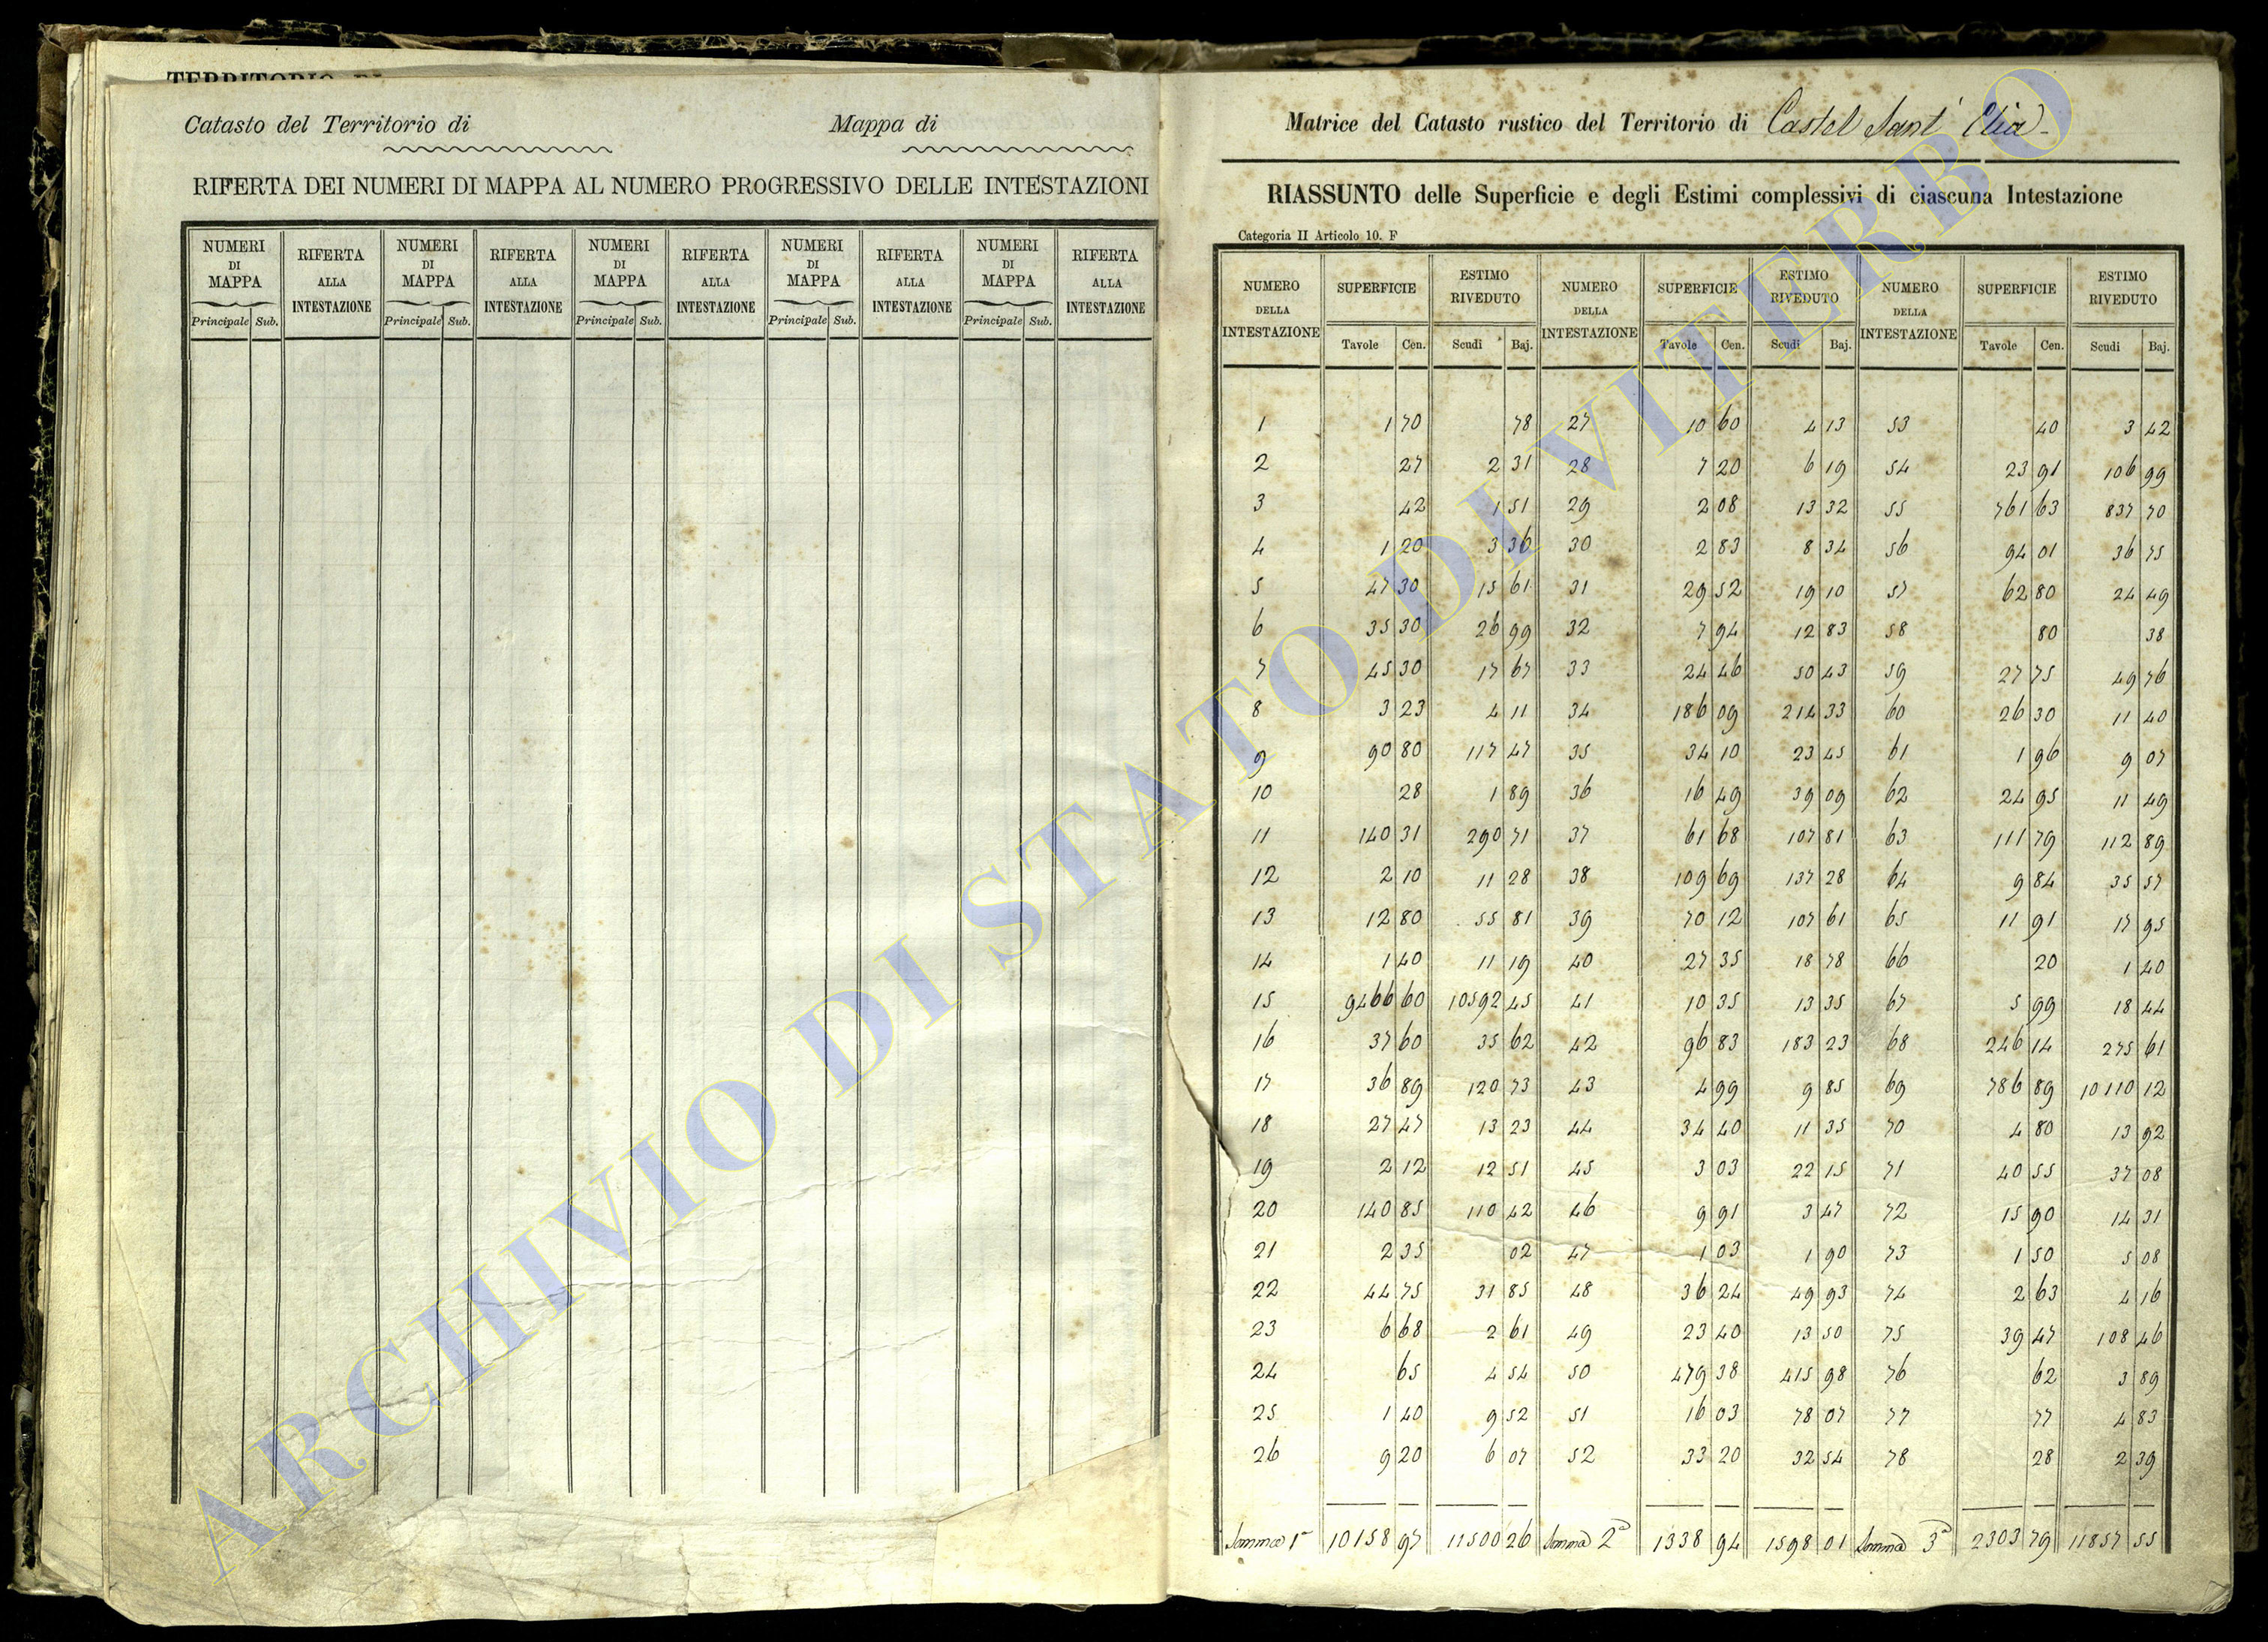 TERRITORIO DI
Catasto del Territorio di Mappa di
RIFERTA DEI NUMERI DI MAPPA AL NUMERO PROGRESSIVO DELLE INTESTAZIONI
NUMERI DI MAPPA RIFERTA ALLA INTESTAZIONE NUMERI DI MAPPA RIFERTA ALLA INTESTAZIONE NUMERI DI MAPPA RIFERTA ALLA INTESTAZIONE NUMERI DI MAPPA RIFERTA ALLA INTESTAZIONE NUMERI DI MAPPA RIFERTA ALLA INTESTAZIONE
Principale Sub. Principale Sub. Principale Sub. Principale Sub. Principale Sub.
Matrice del Catasto rustico del Territorio di Castel Sant' Elia
RIASSUNTO delle Superficie e degli Estimi complessivi di ciascuna Intestazione
Categoria II Articolo 10. F
NUMERO DELLA INTESTAZIONE SUPERFICIE ESTIMO RIVEDUTO NUMERO DELLA INTESTAZIONE SUPERFICIE ESTIMO RIVEDUTO NUMERO DELLA INTESTAZIONE SUPERFICIE ESTIMO RIVEDUTO
Tavole Cen. Scudi Baj. Tavole Cen. Scudi Baj. Tavole Cen. Scudi Baj.
1 1 70 78 27 10 60 4 13 53 40 3 42
2 27 2 31 28 7 20 6 19 54 23 91 106 99
3 42 1 51 29 2 08 13 32 55 761 63 837 70
4 1 20 3 36 30 2 83 8 34 56 94 01 36 75
5 47 30 15 61 31 29 52 19 10 57 62 80 24 49
6 35 30 26 99 32 7 94 12 83 58 80 38
7 45 30 17 67 33 24 46 50 43 59 27 75 49 76
8 3 23 4 11 34 186 09 214 33 60 26 30 11 40
9 90 80 117 47 35 34 10 23 45 61 1 96 9 07
10 28 1 89 36 16 49 39 09 62 24 95 11 49
11 140 31 290 71 37 61 68 107 81 63 111 79 112 89
12 2 10 11 28 38 109 69 137 28 64 9 84 35 57
13 12 80 55 81 39 70 12 107 61 65 11 91 17 95
14 1 40 11 19 40 27 35 18 78 66 20 1 40
15 9466 60 10592 45 41 10 35 13 35 67 5 99 18 44
16 37 60 35 62 42 96 83 183 23 68 246 14 275 61
17 36 89 120 73 43 4 99 9 85 69 786 89 10110 12
18 27 47 13 23 44 34 40 11 35 70 4 80 13 92
19 2 12 12 51 45 3 03 22 15 71 40 55 37 08
20 140 85 110 42 46 9 91 3 47 72 15 90 14 31
21 2 35 02 47 1 03 1 90 73 1 50 5 08
22 44 75 31 85 48 36 24 49 93 74 2 63 4 16
23 6 68 2 61 49 23 40 13 50 75 39 47 108 46
24 65 4 54 50 479 38 415 98 76 62 3 89
25 1 40 9 52 51 16 03 78 07 77 77 4 83
26 9 20 6 07 52 33 20 32 54 78 28 2 39
Somma 1ª 10158 97 11500 26 Somma 2ª 1338 94 1598 01 Somma 3ª 2303 79 11857 55
ARCHIVIO DI STATO DI VITERBO